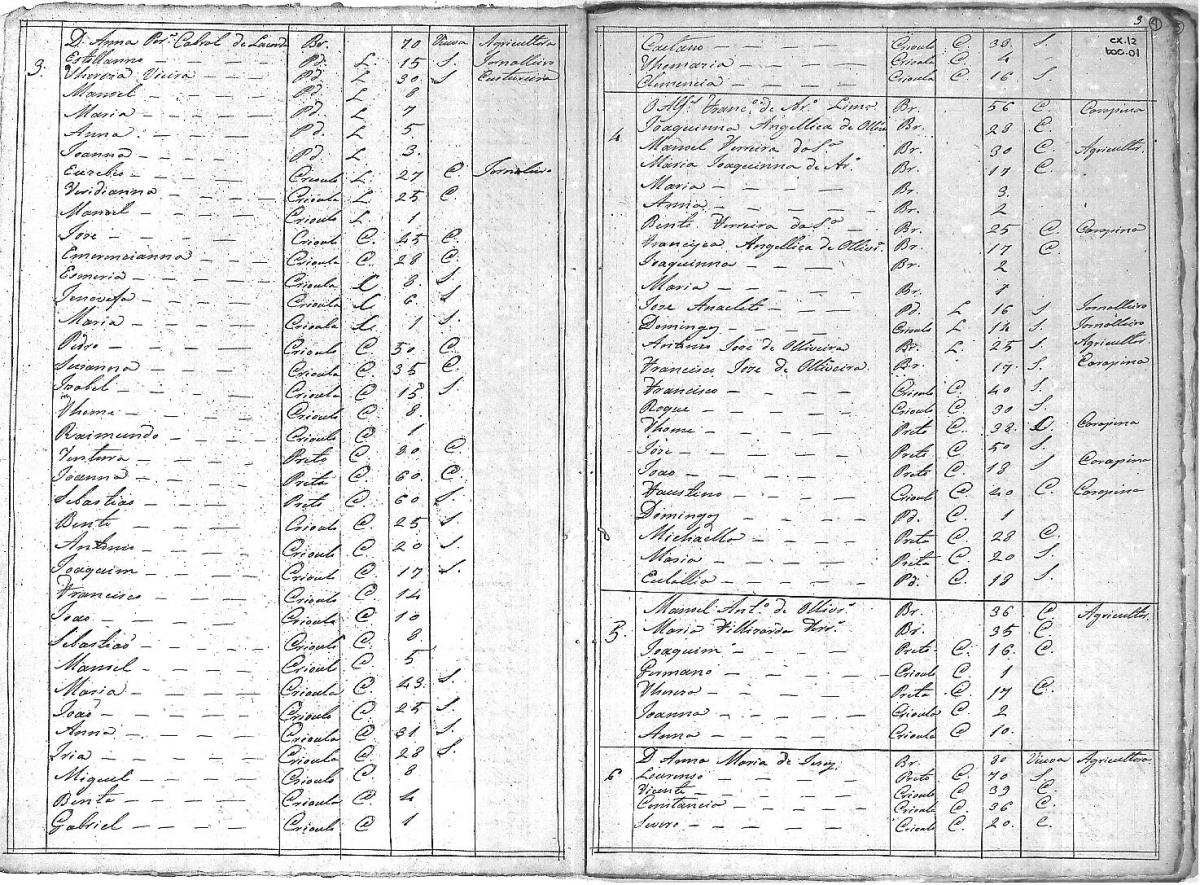 3. D. Anna Per.ª Cabral de Br. 70 Viuva Agricultora
Estellanno Pd. L. 15 S. Jornalleiro
Thereza Vieira Pd. L 30 S. Custureira
Manoel Pd. L 8
Maria Pd. L 7
Anna Pd. L 5
Joanna Pd. L 3.
Euzebio Crioulo L. 27 C. Jornaleiro
Veridianna Crioula L 25 C.
Manoel Crioulo L 1
Jose Crioulo C. 45 C.
Crioula C. 28 C.
Esmeria Crioula L 8. S.
Jenovefa Crioula L 6. S.
Maria Crioula L. 1 S.
Pedro Crioulo C 50. C.
Suzanna Crioula C. 35 C.
Izabel Crioula C 15 S.
Thome Crioulo C 8.
Raimundo Crioulo C. 1
Ventura Preto C. 80 C.
Joanna Preta C. 60 C.
Sebastião Preto C. 60 S.
Bento Crioulo C. 25 S.
Antonio Crioulo C 20 S.
Joaquim Crioulo C 17 S.
Francisco Crioulo C 14
João Crioulo C 10
Sebastião Crioulo C. 8.
Manoel Crioulo C. 5
Maria Crioula C. 43. S.
João Crioulo C. 25 S.
Anna Crioula C. 31 S.
Iria Crioula C. 28 S.
Miguel Crioulo C. 8
Bento Crioulo C. 4
Gabriel Crioulo C 1
3 4
cx.12
DOC.01
Caetano Crioulo C. 38. S.
Crioula C. 4
Clemencia Crioula C 16 S
4 O Alf.s Franc.º de Ar.º Lima Br. 56 C. Carapina
Joaquinna Angellica de Br. 28 C.
Manoel Ferreira da S.ª Br. 30 C Agricultor.
Maria Joaquinna de Ar.º Br. 17 C.
Maria Br. 3.
Anna Br. 2
Bento Ferreira da S.ª Br. 25 C. Carapina
Francisca Angellica de Br. 17 C.
Joaquinna Br. 2
Maria Br. 1
Jose Anacleto Pd. L 16 S Jornalleiro
Domingos Crioulo L 14 S. Jornalleiro
Antonio Jose de Olliveira Br. L. 25 S Agricultor
Francisco Jose de Olliveira Br. 17. S. Carapina
Francisco Crioulo C. 40 S.
Roque Crioulo C. 30 S.
Thome Preto C 38. C Carapina
Jose Preto C. 50 S.
João Preto C. 18 S Carapina
Faustino Crioulo C 40 C. Carapina
Domingos Pd. C. 1
Michaella Preta C 28 C.
Maria Preta C. 20 S.
Eulallia Pd. C. 18 S.
5. Manoel Ant.º de Olliv.ª Br. 36 C Agricultor.
Maria Br. 35 C.
Joaquim Preto C. 16. C.
Germano Crioulo C. 1
Thereza Preta C. 17 C.
Joanna Crioula C. 2
Anna Crioula C 10.
6 D. Anna Maria de Br. 80 Viuva Agricultora
Lourenso Preto C. 70 S.
Vicente Crioulo C. 39 C.
Constancia Crioula C. 36 C.
Severo Crioulo C. 20. C.